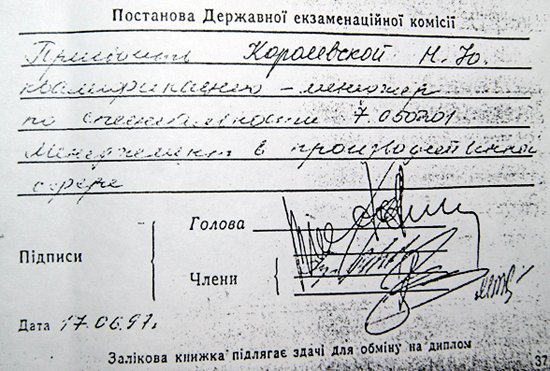 Постанова Державної екзаменаційної комісії
Присвоить Королевской Н. Ю.
квалификацию – менеджер
по специальности 7.050201
Менеджмент в производственной
сфере
Голова
Підписи
Члени
Дата 17.06.97г.
Залікова книжка підлягає здачі для обміну на диплом
37